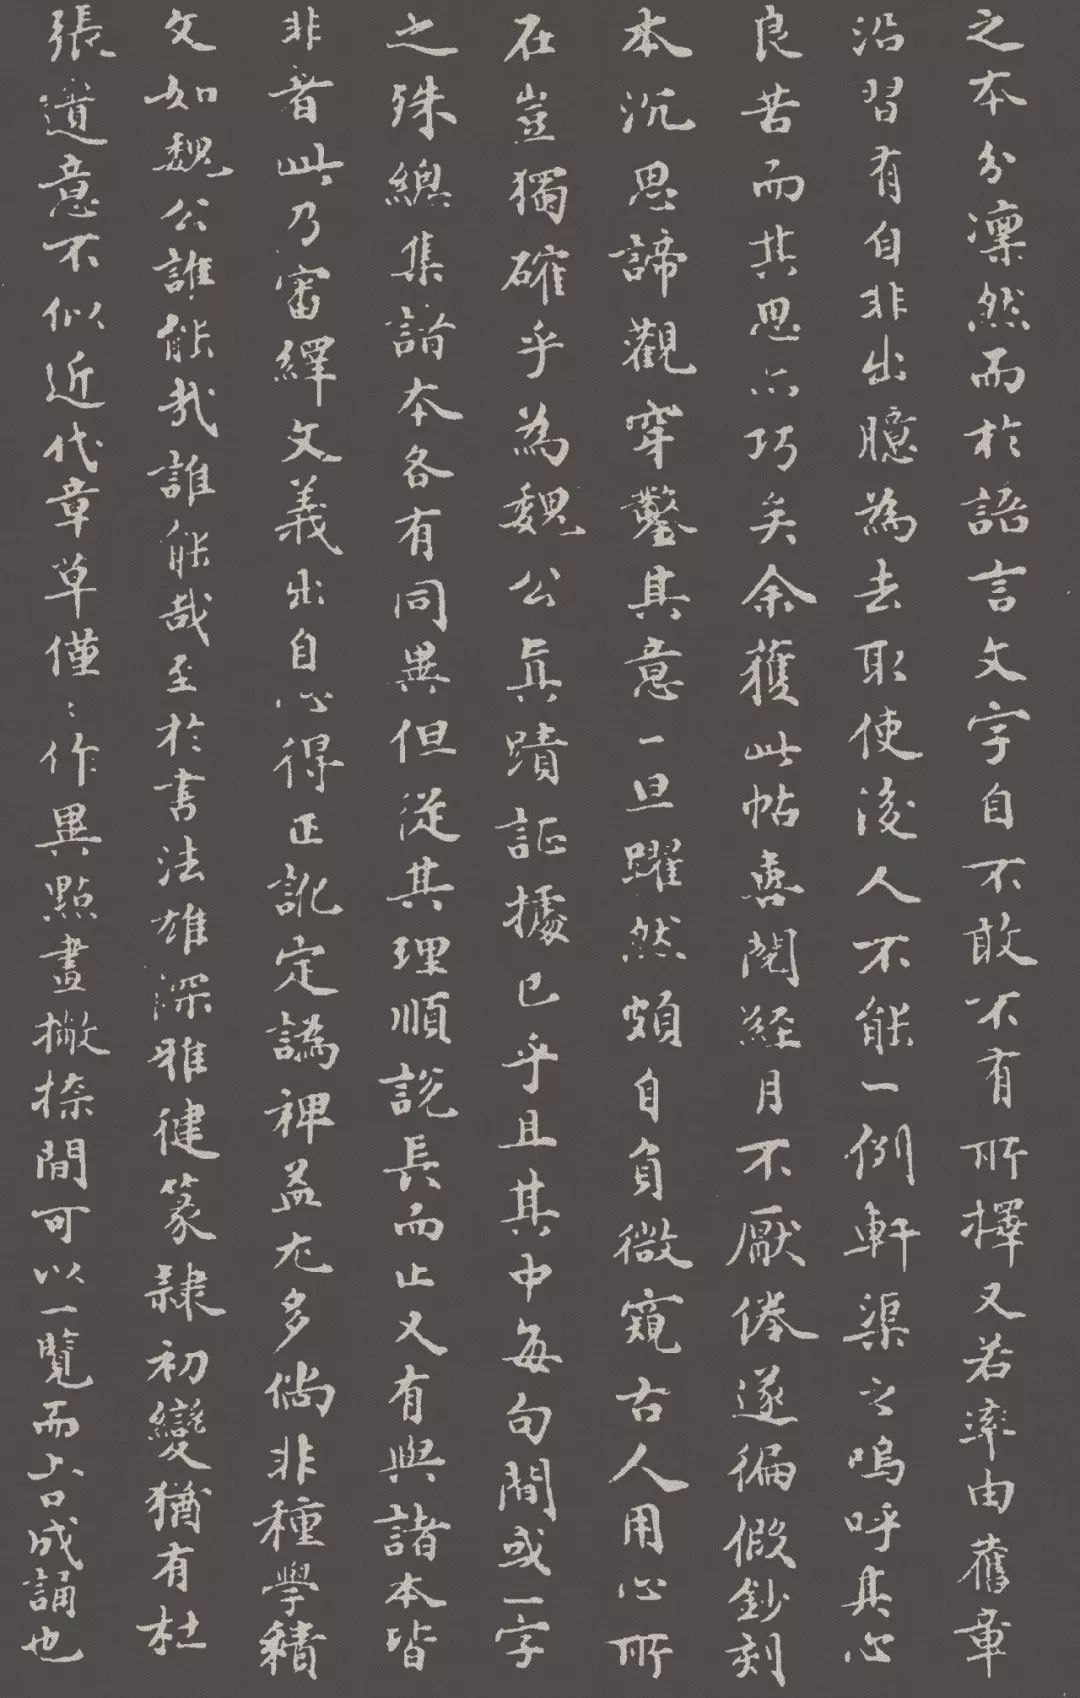 之本分凜然而於語言文字自不敢不有所擇又若率由舊章
沿習有自非出臆為去取使後人不能一例軒渠之嗚呼其心
良苦而其思亦巧矣余獲此帖喜閱經月不厭倦遂徧假鈔刻
本沉思諦觀穿鑿其意一旦躍然頗自負微窺古人用心所
在豈獨確乎為魏公真蹟証據已乎且其中每句間或一字
之殊總集諸本各有同異但從其理順說長而止又有與諸本皆
非者此乃審繹文義出自心得正訛定譌裨益尤多倘非種學積
文如魏公誰能哉誰能哉至於書法雄深雅健篆隸初變猶有杜
張遺意不似近代章草僅〻作異點畫撇捺間可以一覽而上口成誦也